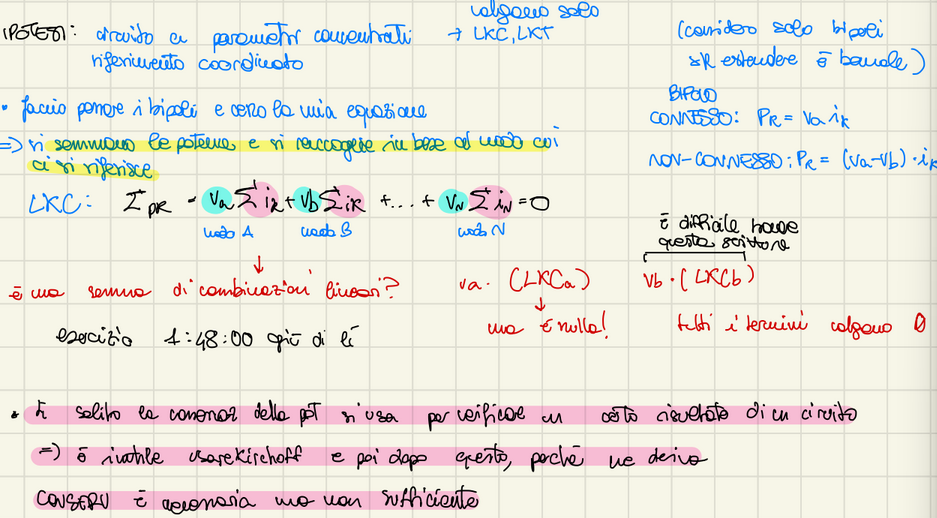 IPOTESI: circuito a parametri concentrati → valgono solo LKC, LKT
riferimento coordinato
(considero solo bipoli
xk estendere è banale)
• faccio pensare i bipoli e cerco la mia equazione
=> si sommano le potenze e si raccoglie in base al nodo cui
ci si riferisce
BIPOLO
CONNESSO: PK = va iK
NON-CONNESSO: PK = (va-vb)·iK
LKC: ΣPK = va Σ iK + vb Σ iK + ... + vN Σ iN = 0
nodo A nodo B nodo N
È difficile trovare
questa scrittura
è una somma di combinazioni lineari? va · (LKCa) vb · (LKCb)
ma è nulla! tutti i termini valgono 0
esercizio 1:48:00 giù di lì
• di solito la conservaz della pot si usa per verificare un certo risultato di un circuito
=> è inutile usare Kirchoff e poi dopo questo, poichè ne deriva
CONSERV è necessaria ma non sufficiente